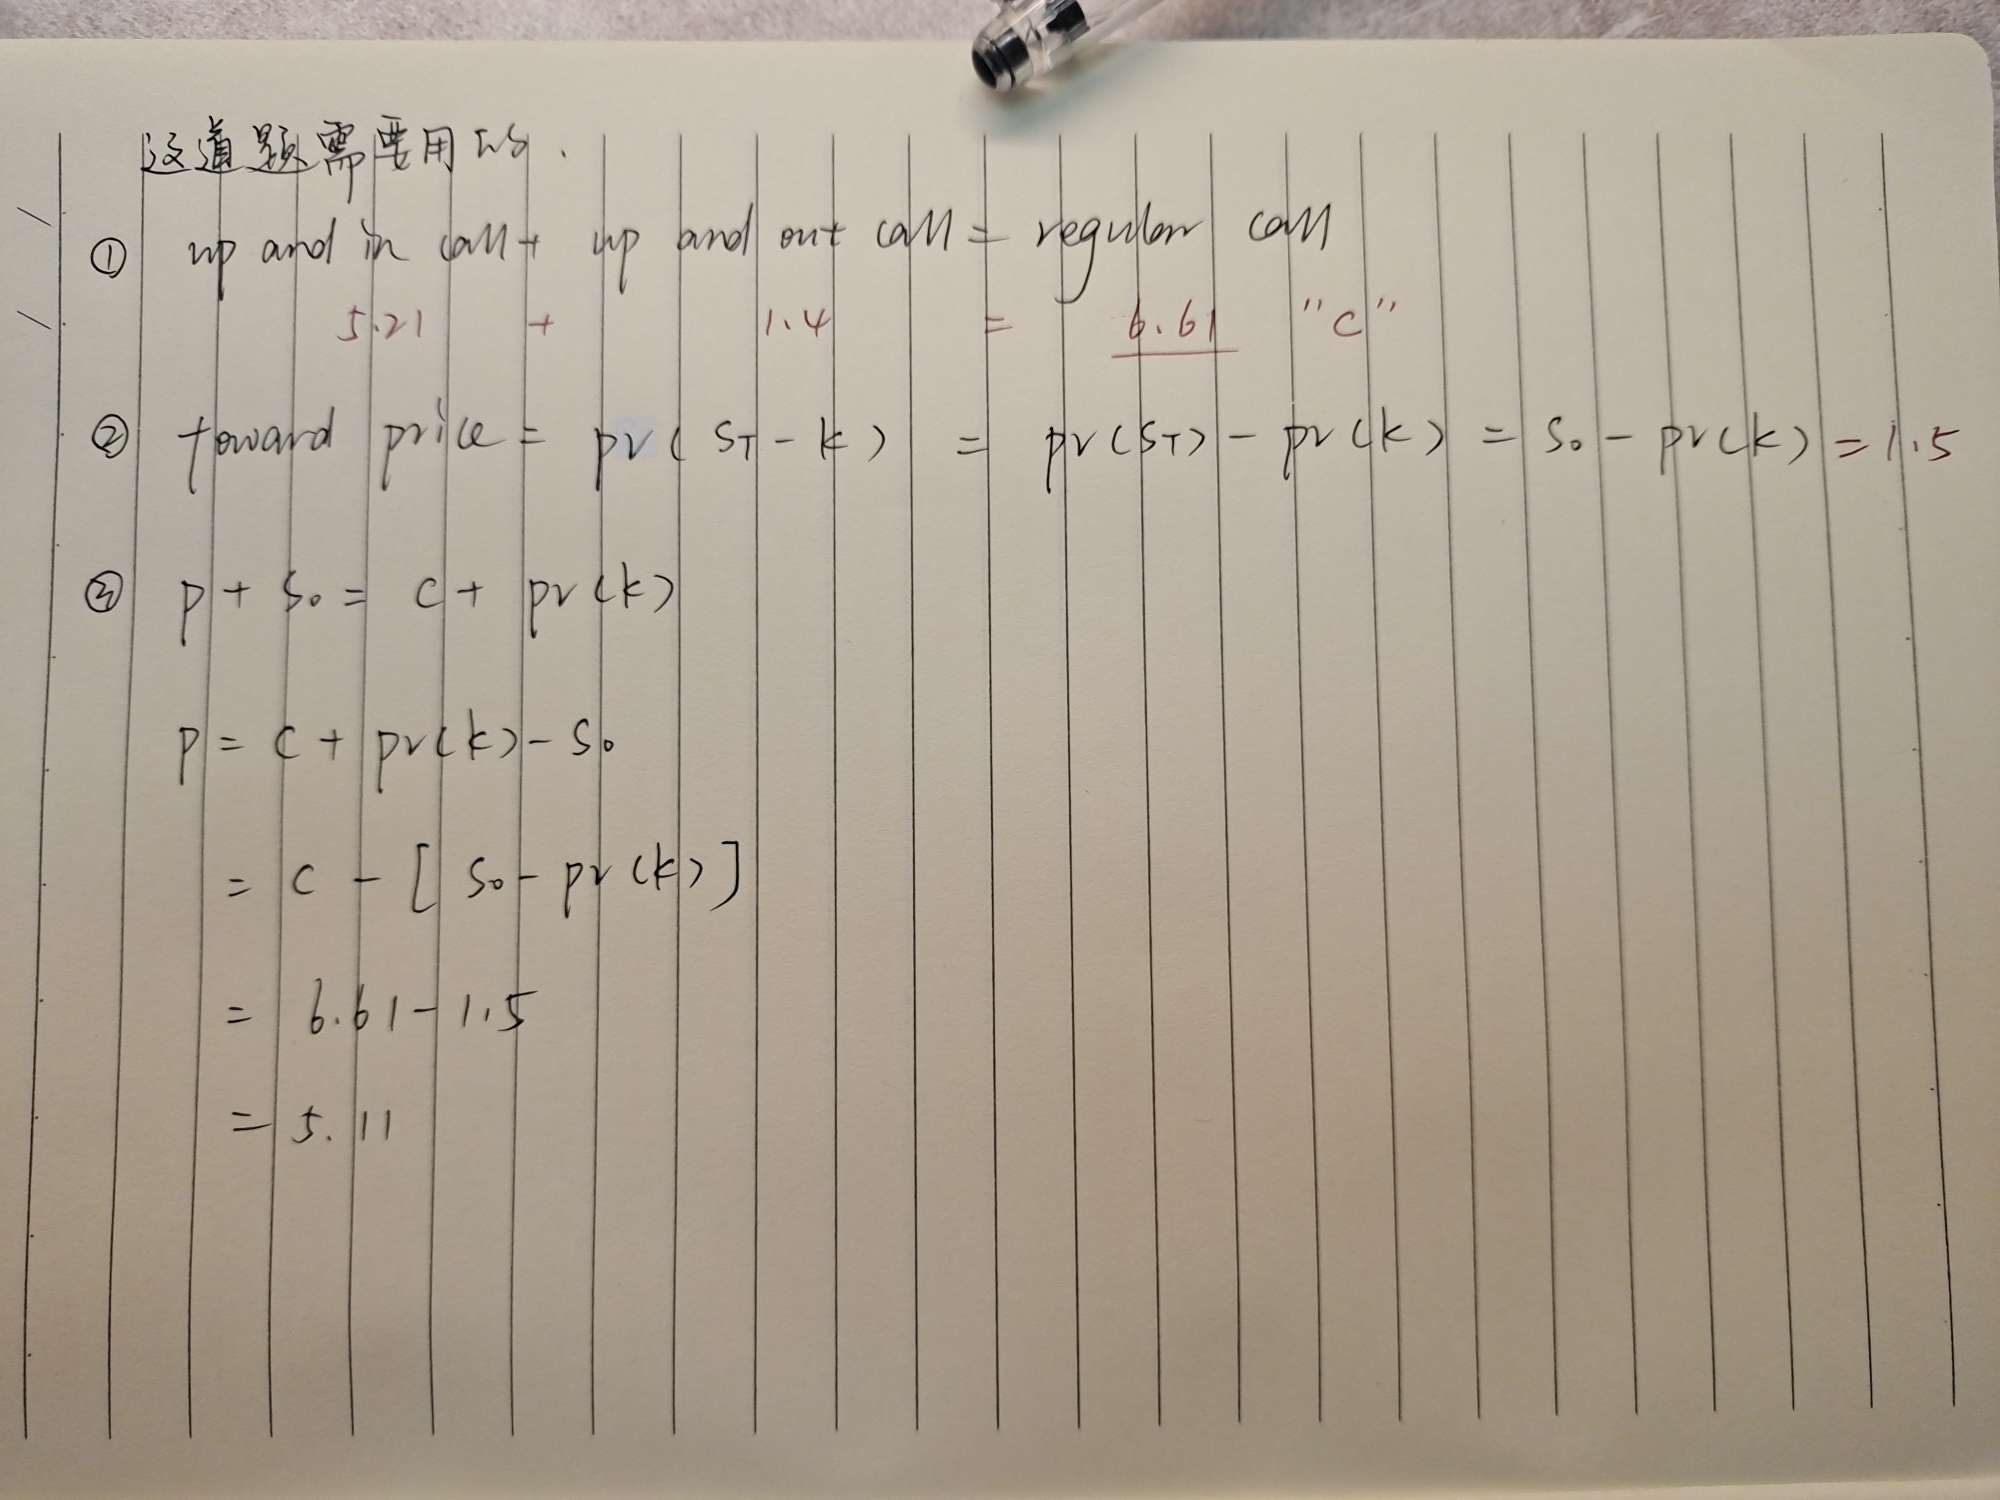 这道题需要用 IS.
① up and in call + up and out call = regular call
5.21 + 1.4 = 6.61 "c"
② toward price = pv( ST - k ) = pv(ST) - pv(k) = S0 - pv(k) = 1.5
③ p + S0 = c + pv(k)
p = c + pv(k) - S0
= c - [ S0 - pv(k) ]
= 6.61 - 1.5
= 5.11